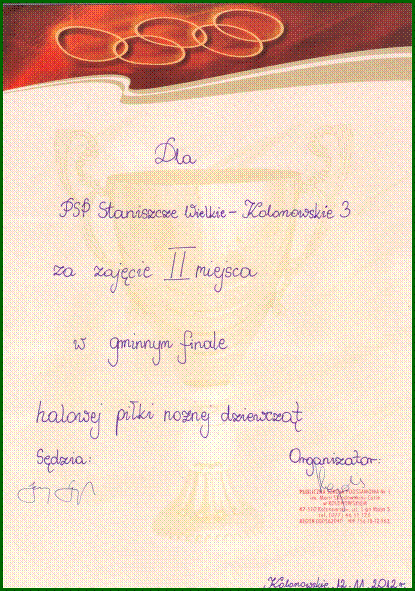 Dla
PSP Staniszcze Wielkie - Kolonowskie 3
za zajęcie II miejsca
w gminnym finale
halowej piłki nożnej dziewcząt
Sędzia: Organizator:
PUBLICZNA SZKOŁA PODSTAWOWA Nr 1
w KOLONOWSKIEM
Kolonowskie, 12.11.2012r.